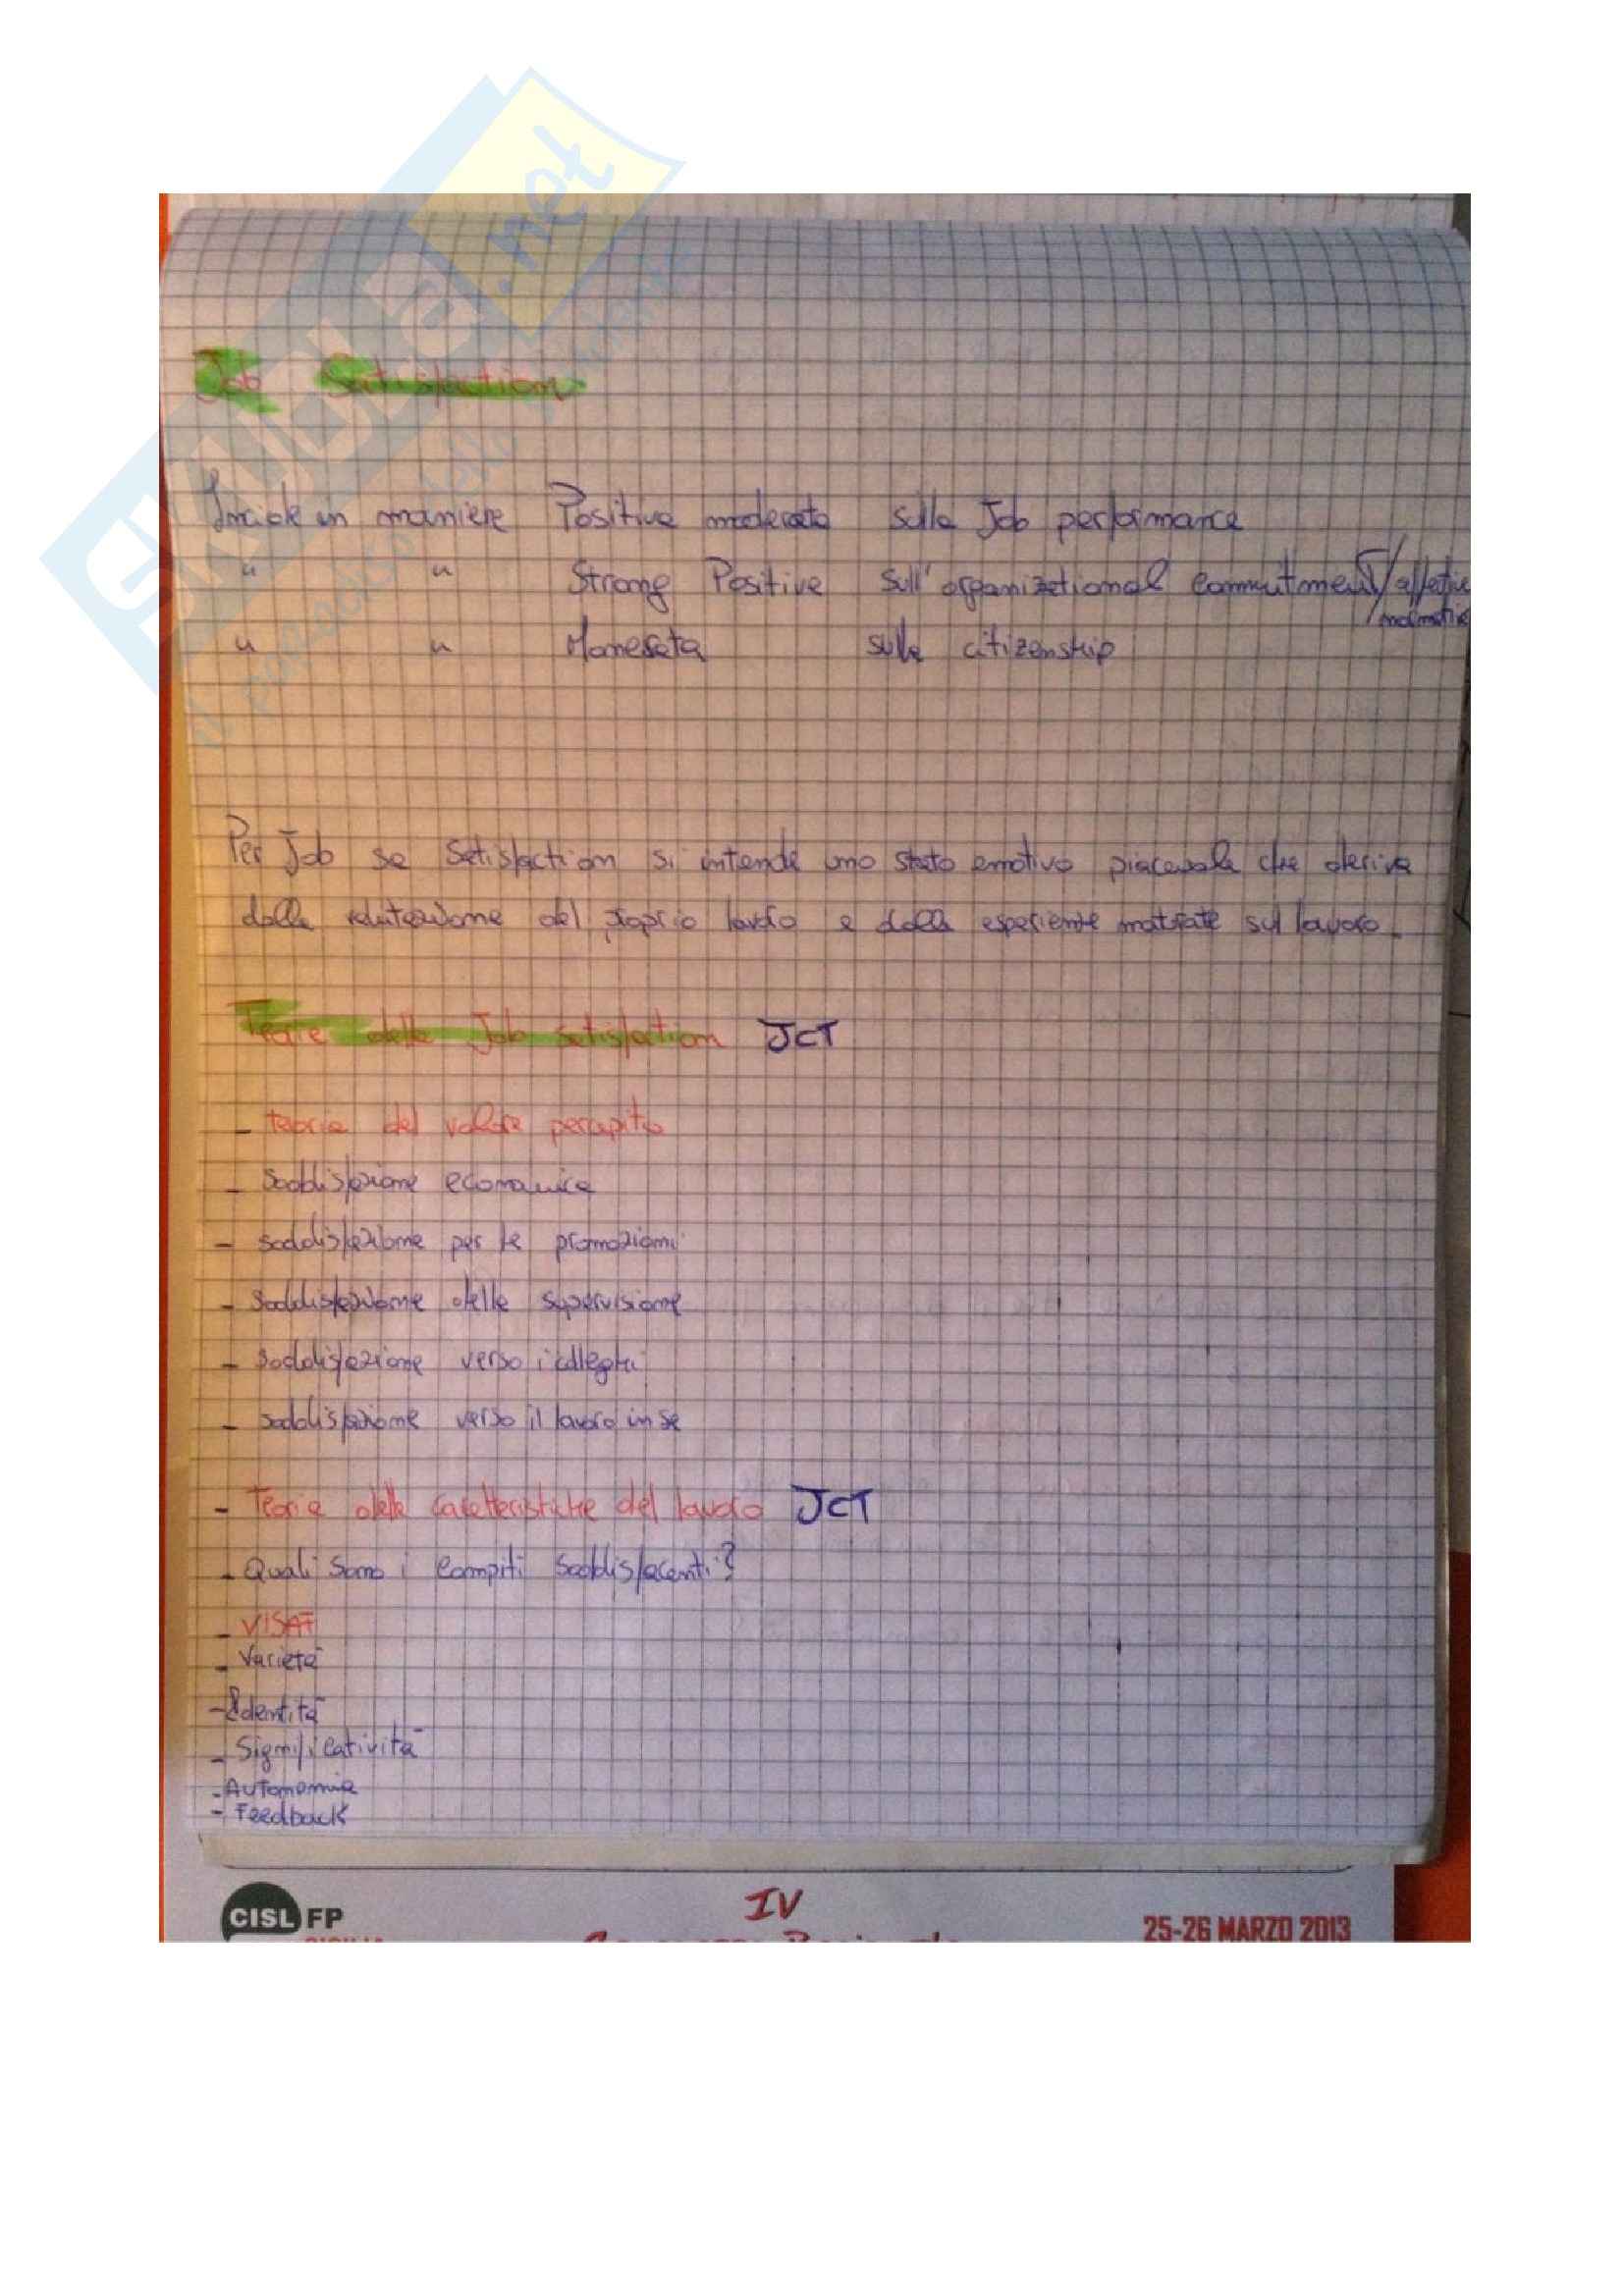 Job Satisfaction
Incide in maniera Positiva moderata sulla Job performance
" " Strong Positive sull'organizational commitment / affettivo
/ normativo
" " sulla citizenship
Per Job se Satisfaction si intende uno stato emotivo piacevole che deriva
dalla valutazione del proprio lavoro e dalle esperienze maturate sul lavoro.
Teorie della Job satisfaction JCT
- teoria del valore percepito
- Soddisfazione economica
- soddisfazione per le promozioni
- Soddisfazione della supervisione
- Soddisfazione verso i colleghi
- soddisfazione verso il lavoro in se
- Teoria delle caratteristiche del lavoro JCT
- Quali sono i compiti soddisfacenti?
- VISAF
- Varietà
- Identità
- Significatività
- Autonomia
- Feedback
CISL FP
IV
25-26 MARZO 2013
SKUOLA.net
il paradiso dello studente